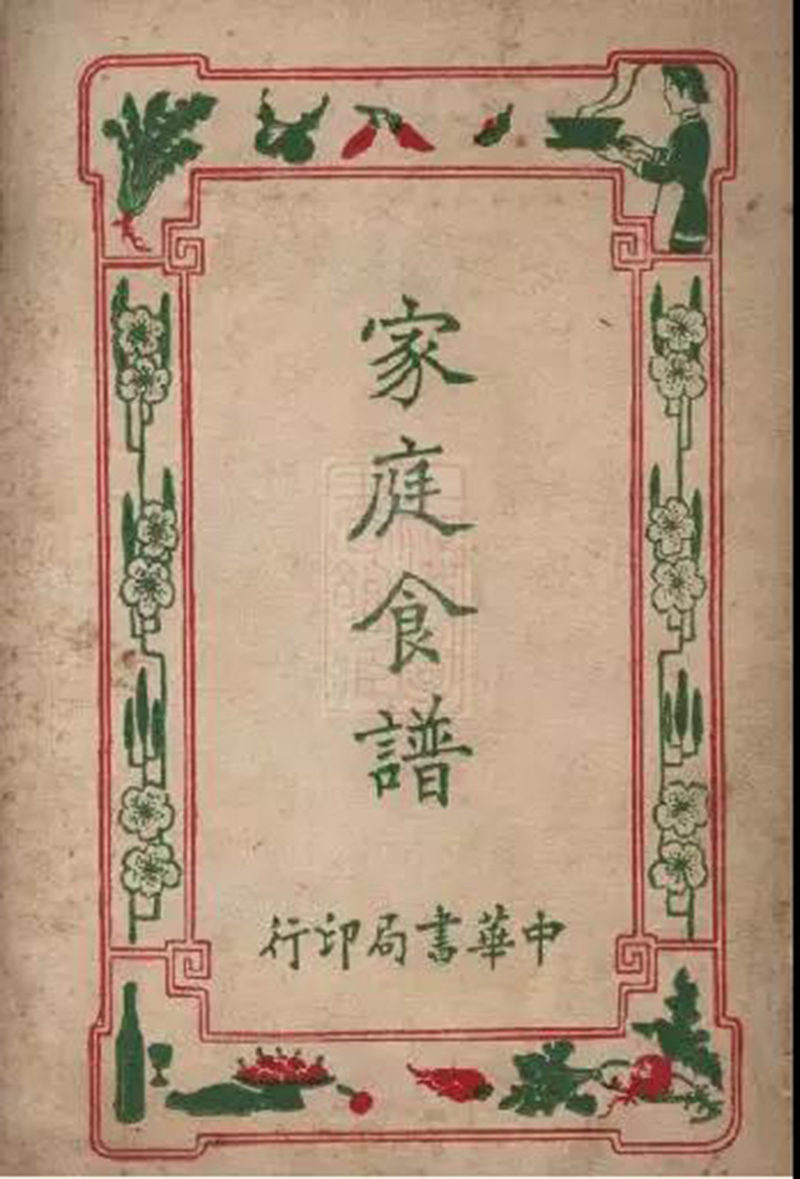 家庭食譜
中華書局印行